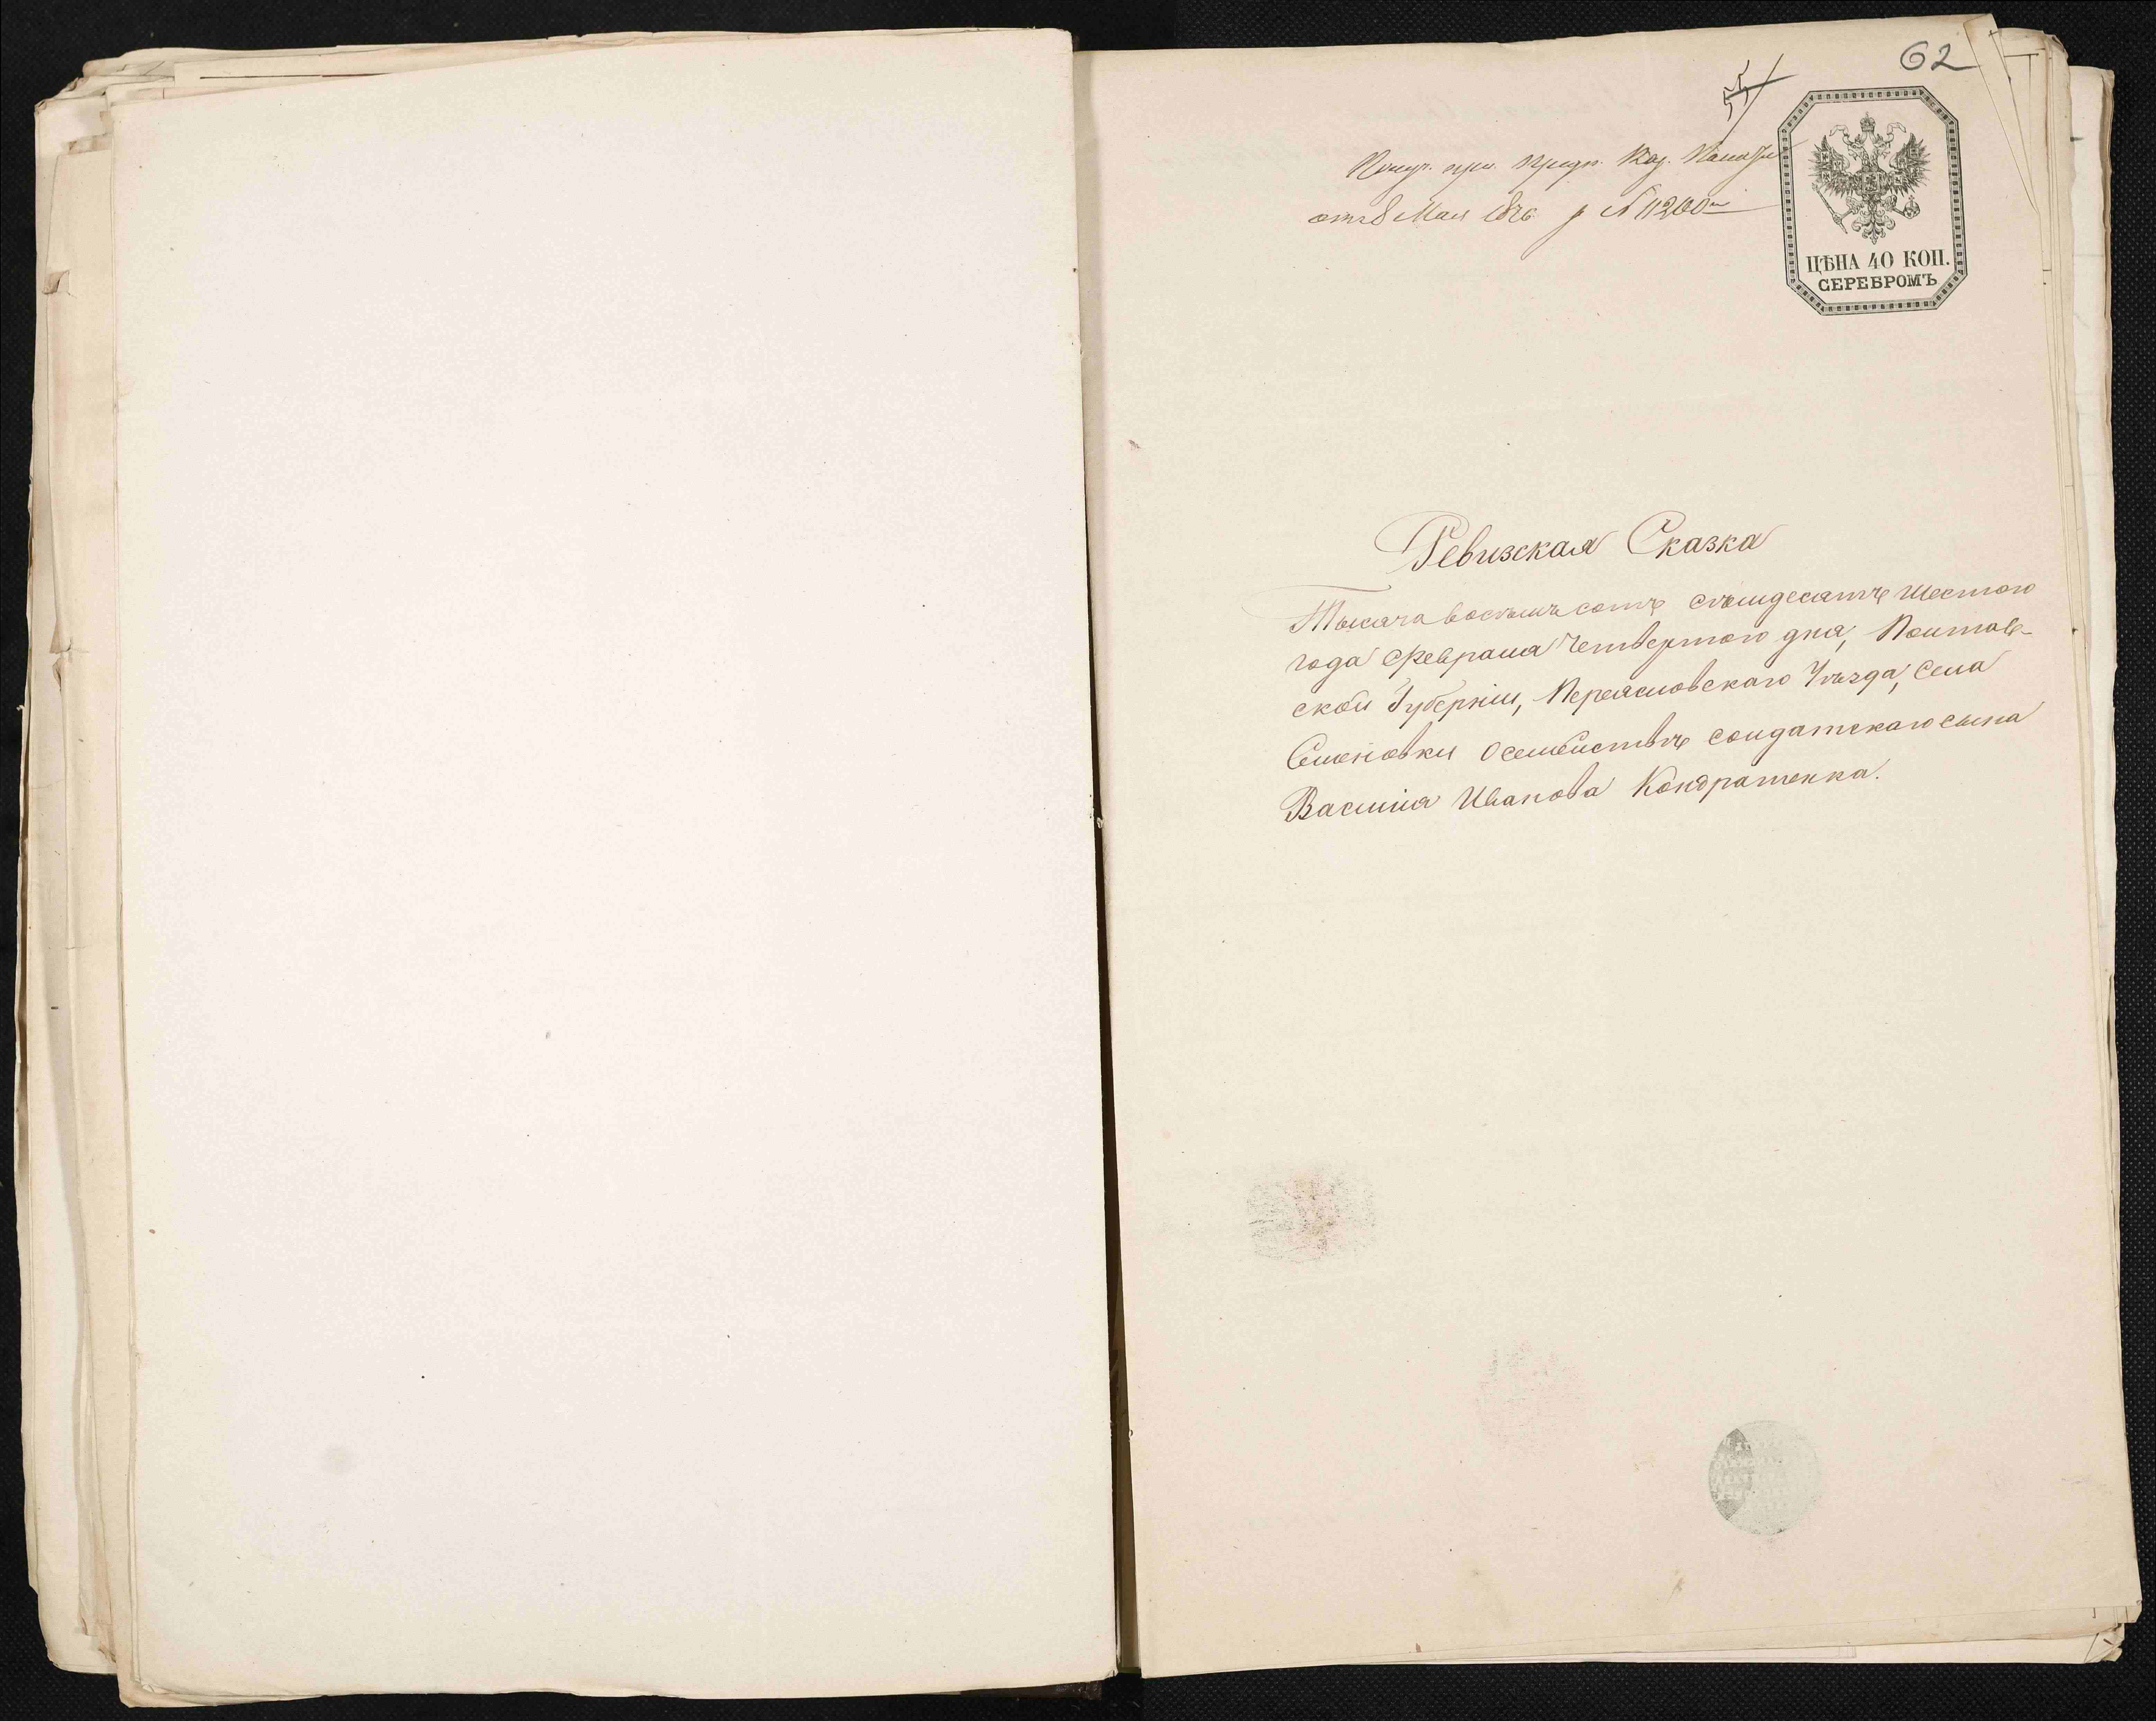 62
55
Получ. при предп. Каз. Палаты
отъ 8 Мая 1876 г. № 11200
ЦѢНА 40 КОП.
СЕРЕБРОМЪ
Ревизская Сказка
Тысяча восемьсотъ семьдесятъ шестого
года Февраля четвертого дня, Полтав-
ской Губерніи, Переяславскаго Уѣзда, села
Семеновки о семействѣ солдатскаго сына
Василія Иванова Кондратенка.